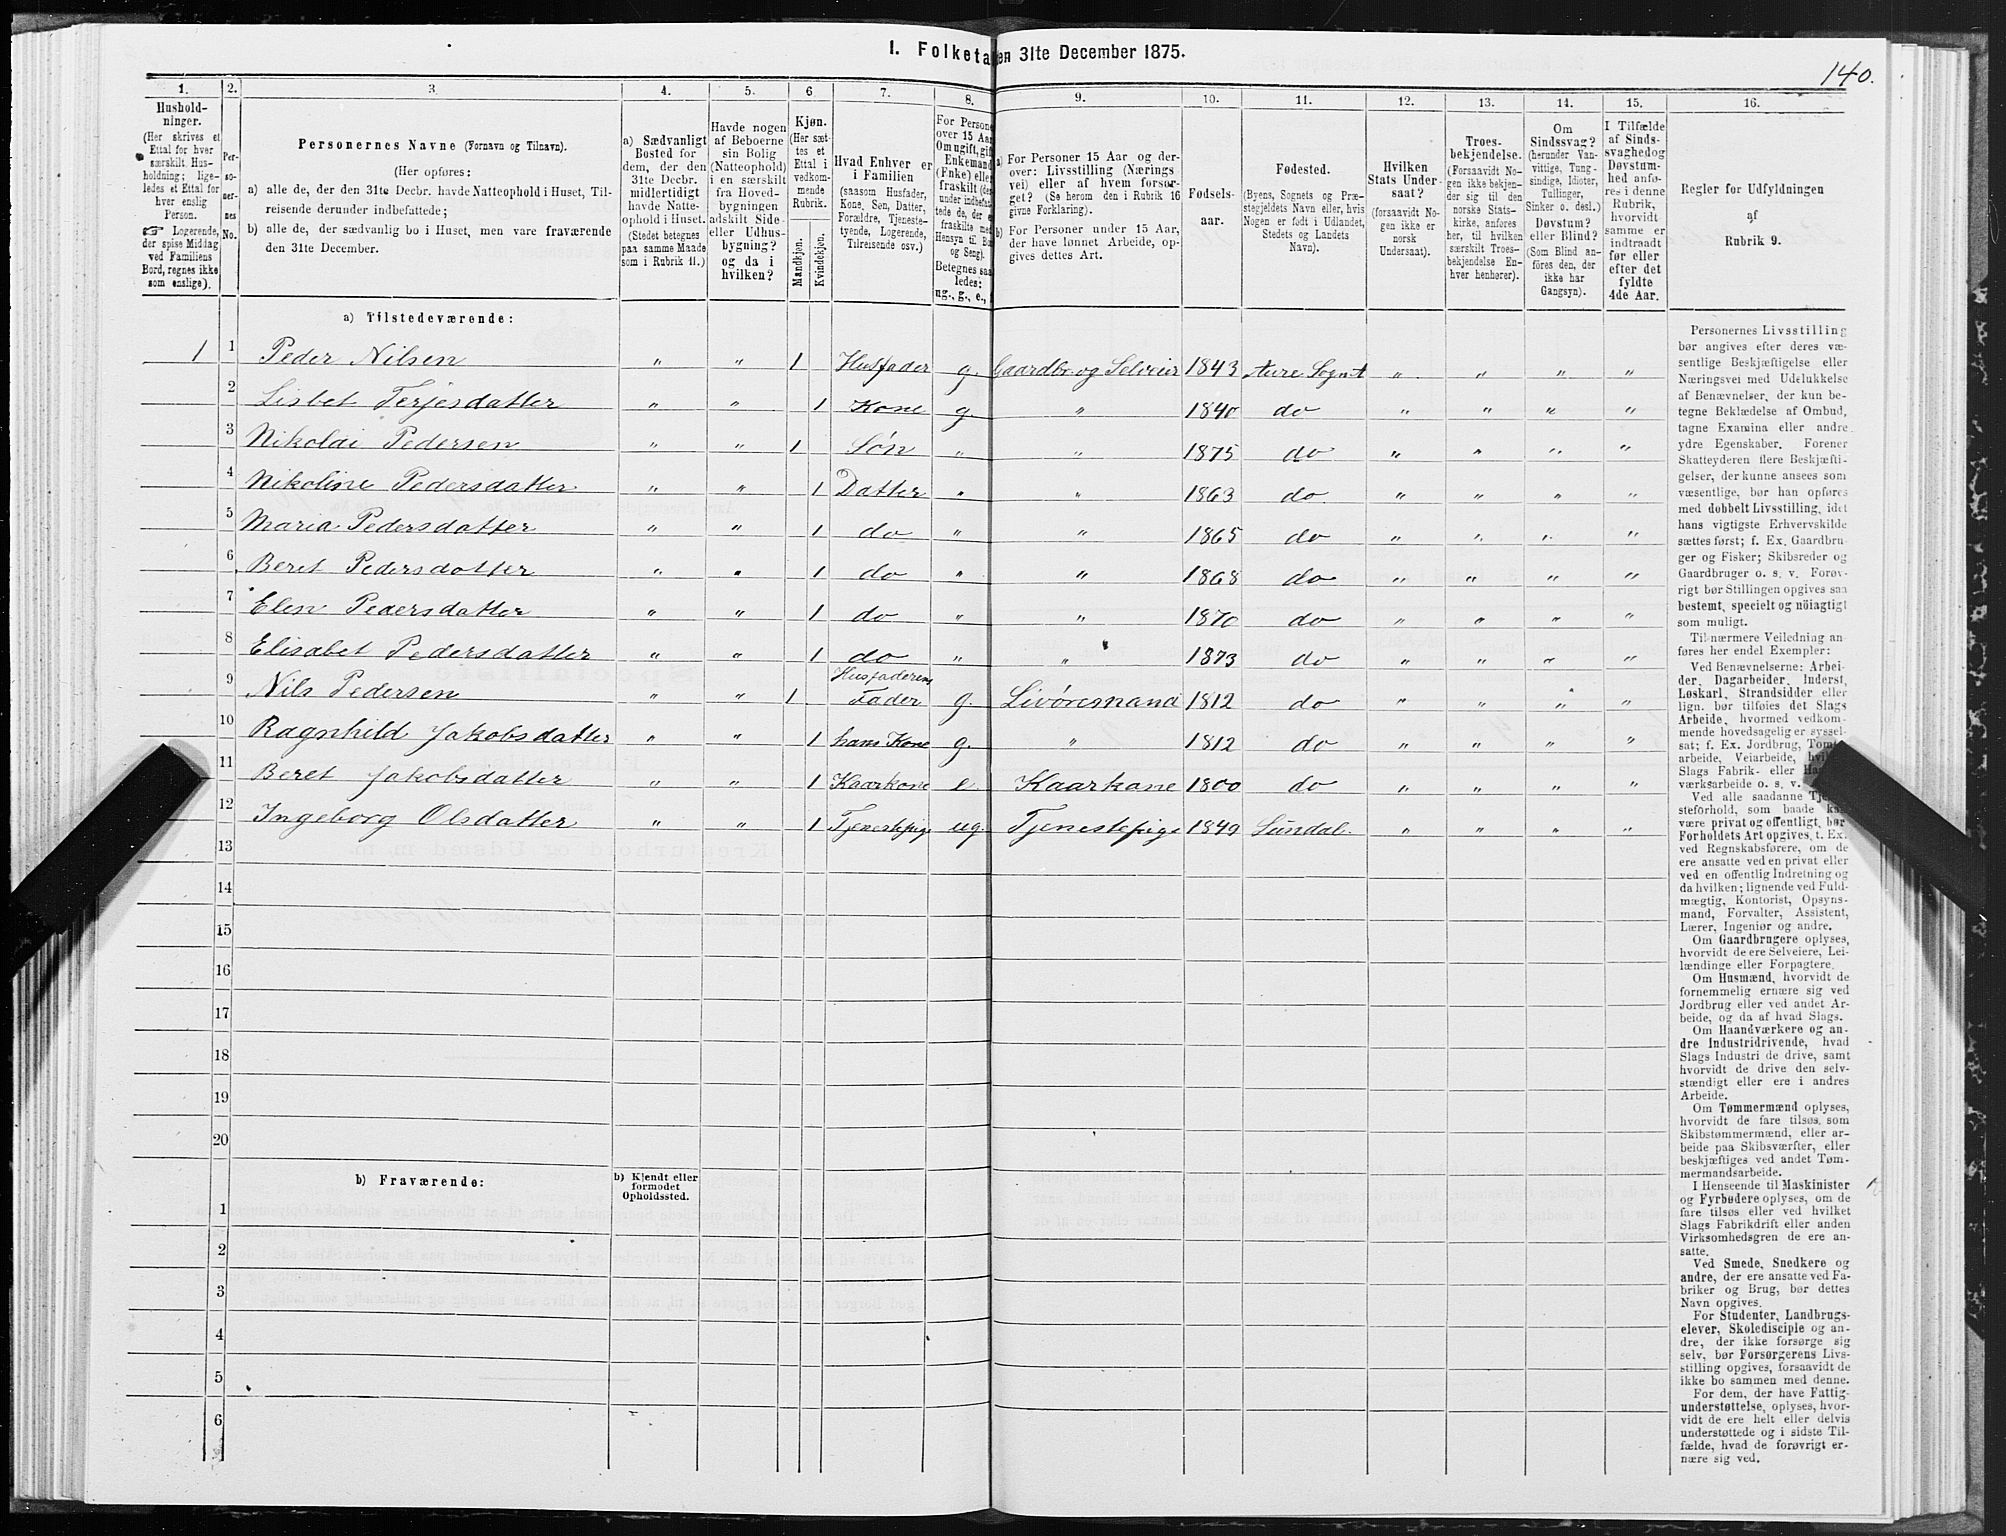 I. Folketa en 31te December 1875.
140.
1.
Hushold-
ninger.
(Her skrives et
Ettal for hver
særskilt Hus-
holdning; lige-
ledes et Ettal for
hver enslig
Person.
☞ Logerende,
der spise Middag
ved Familiens
Bord, regnes ikke
som enslige).
2.
Per-
so-
ner-
nes
No.
3.
Personernes Navne (Fornavn og Tilnavn).
(Her opføres:
a) alle de, der den 31te Decbr. havde Natteophold i Huset, Til-
reisende derunder indbefattede;
b) alle de, der sædvanlig bo i Huset, men vare fraværende
den 31te December.
4.
a) Sædvanligt
Bosted for
dem, der den
31te Decbr.
midlertidigt
havde Natte-
ophold i Huset.
(Stedet betegnes
paa samme Maade
som i Rubrik 11.)
5.
Havde nogen
af Beboerne
sin Bolig
(Natteophold)
i en særskilt
fra Hoved-
bygningen
adskilt Side-
eller Udhus-
bygning?
og da i
hvilken?
6
Kjøn.
(Her sæt-
tes et
Ettal i
vedkom-
mende
Rubrik.
Mandkjøn.
Kvindekjøn.
7.
Hvad Enhver er
i Familien
(saasom Husfader,
Kone, Søn, Datter,
Forældre, Tjeneste-
tyende, Logerende,
Tilreisende osv.)
8.
For Persone
over 15 Aar
Om ugift, gift
Enkemand
(Enke) eller
fraskilt (der
under indbefat-
tede de, der e
fraskilte med
Hensyn til Bo
og Seng).
Betegnes saa
ledes:
ug., g., e.,
9.
a) For Personer 15 Aar og der-
over: Livsstilling (Nærings
vei) eller af hvem forsør-
get? (Se herom den i Rubrik 16
givne Forklaring).
b) For Personer under 15 Aar,
der have lønnet Arbeide, op-
gives dettes Art.
10.
Fødsels-
aar.
11.
Fødested.
(Byens, Sognets og Præ-
stegjeldets Navn eller, hvis
Nogen er født i Udlandet,
Stedets og Landets
Navn).
12.
Hvilken
Stats Under-
saat?
(forsaavidt No-
gen ikke er
norsk
Undersaat).
13.
Troes-
bekjendelse.
(Forsaavidt No-
gen ikke bekjen-
der sig til den
norske Stats-
kirke, anføres
her, til hvilken
særskilt Troes-
bekjendelse En-
hver henhører).
14.
Om
Sindssvag?
(herunder Van-
vittige, Tung-
sindige, Idioter,
Tullinger,
Sinker o. desl.)
Døvstum?
eller Blind?
(Som Blind an-
føres den, der
ikke har
Gangsyn).
15.
I Tilfælde
af Sinds-
svaghedog
Døvstum-
hed anfø-
res i denne
Rubrik,
hvorvidt
samme er
indtraadt
før eller
efter det
fyldte
4de Aar.
16.
Regler for Udfyldningen
af
Rubrik 9.
a) Tilstedeværende:
1 1 Peder Nilsen " " 1 Husfader g. Gaardbr. og Selveier 1843 Aure Sognt " " " "
2 Lisbet Terjesdatter " " 1 Kone g. " 1840 do " " " "
3 Nikolai Pedersen " " 1 Søn " " 1875 do " " " "
4 Nikoline Pedersdatter " " 1 Datter " " 1863 do. " " " "
5 Maria Pedersdatter " " 1 do " " 1865 do " " " "
6 Beret Pedersdatter " " 1 do " " 1868 do " " " "
7 Elen Pedersdatter " " 1 do " " 1870 do " " " "
8 Elisabet Pedersdatter " " 1 do " " 1873 do " " " "
9 Nils Pedersen " " 1 Husfaderens Fader g. Livøresmand 1812 do " " " "
10 Ragnhild Jakobsdatter " " 1 hans Kone g. " 1812 do " " " "
11 Beret Jakobsdatter " " 1 Kaarkone e. Kaarkone 1800 do " " " "
12 Ingeborg Olsdatter " " 1 Tjenestepige ug. Tjenestepige 1849 Sundal. " " " "
13
14
15
16
17
18
19
20
b) Fraværende:
b) Kjendt eller
formodet
Opholdssted.
1
2
3
4
5
6
Personernes Livsstilling
bør angives efter deres væ-
sentlige Beskjæftigelse eller
Næringsvei med Udelukkelse
af Benævnelser, der kun be-
tegne Beklædelse af Ombud,
tagne Examina eller andre
ydre Egenskaber. Forener
Skatteyderen flere Beskjæfti-
gelser, der kunne ansees som
væsentlige, bør han opføres
med dobbelt Livsstilling, idet
hans vigtigste Erhvervskilde
sættes først; f. Ex. Gaardbru
ger og Fisker; Skibsreder og
Gaardbruger o. s. v. Forøv-
rigt bør Stillingen opgives saa
bestemt, specielt og nöiagtigt
som muligt.
Til nærmere Veiledning an-
føres her endel Exempler:
Ved Benævnelserne: Arbei-
der, Dagarbeider, Inderst,
Løskarl, Strandsidder eller
lign. bør tilføies det Slags
Arbeide, hvormed vedkom-
mende hovedsagelig er syssel-
sat; f. Ex. Jordbrug, Tomte-
arbeide, Veiarbeide, hvil
Slags Fabrik- eller Ha
værksarbeide o. s. v.
Ved alle saadanne Tje
steforhold, som baade ka
være privat og offentligt, bør
Forholdets Art opgives, t. Ex.
ved Regnskabsførere, om de
ere ansatte ved en privat eller
ved en offentlig Indretning og
da hvilken; lignende ved Fuld-
mægtig, Kontorist, Opsyns-
mand, Forvalter, Assistent,
Lærer, Ingeniør og andre.
Om Gaardbrugere oplyses,
hvorvidt de ere Selveiere, Lei-
lændinge eller Forpagtere.
Om Husmænd, hvorvidt de
fornemmelig ernære sig ved
Jordbrug eller ved andet Ar-
beide, og da af hvad Slags.
Om Haandværkere og an-
dre Industridrivende, hvad
Slags Industri de drive, samt
hvorvidt de drive den selv-
stændigt eller ere i andres
Arbeide.
Om Tømmermænd oplyses,
hvorvidt de fare tilsøs som
Skibstømmermænd, eller ar-
beide paa Skibsværfter, eller
beskjæftiges ved andet Tøm-
mermandsarbeide.
I Henseende til Maskinister
og Fyrbødere oplyses, om de
fare tilsøs eller ved hvilket
Slags Fabrikdrift eller anden
Virksomhedsgren de ere an-
satte.
Ved Smede, Snedkere og
andre, der ere ansatte ved Fa-
briker og Brug, bør dettes
Navn opgives.
For Studenter, Landbrugs-
elever, Skoledisciple og an-
dre, der ikke forsørge sig
selv, bør Forsørgerens Livs-
stilling opgives, forsaavidt de
ikke bo sammen med denne.
For dem, der have Fattig-
understøttelse, oplyses, hvor-
vidt de ere helt eller delvis
understøttede og i sidste Til-
fælde, hvad de forøvrigt er-
nære sig ved.